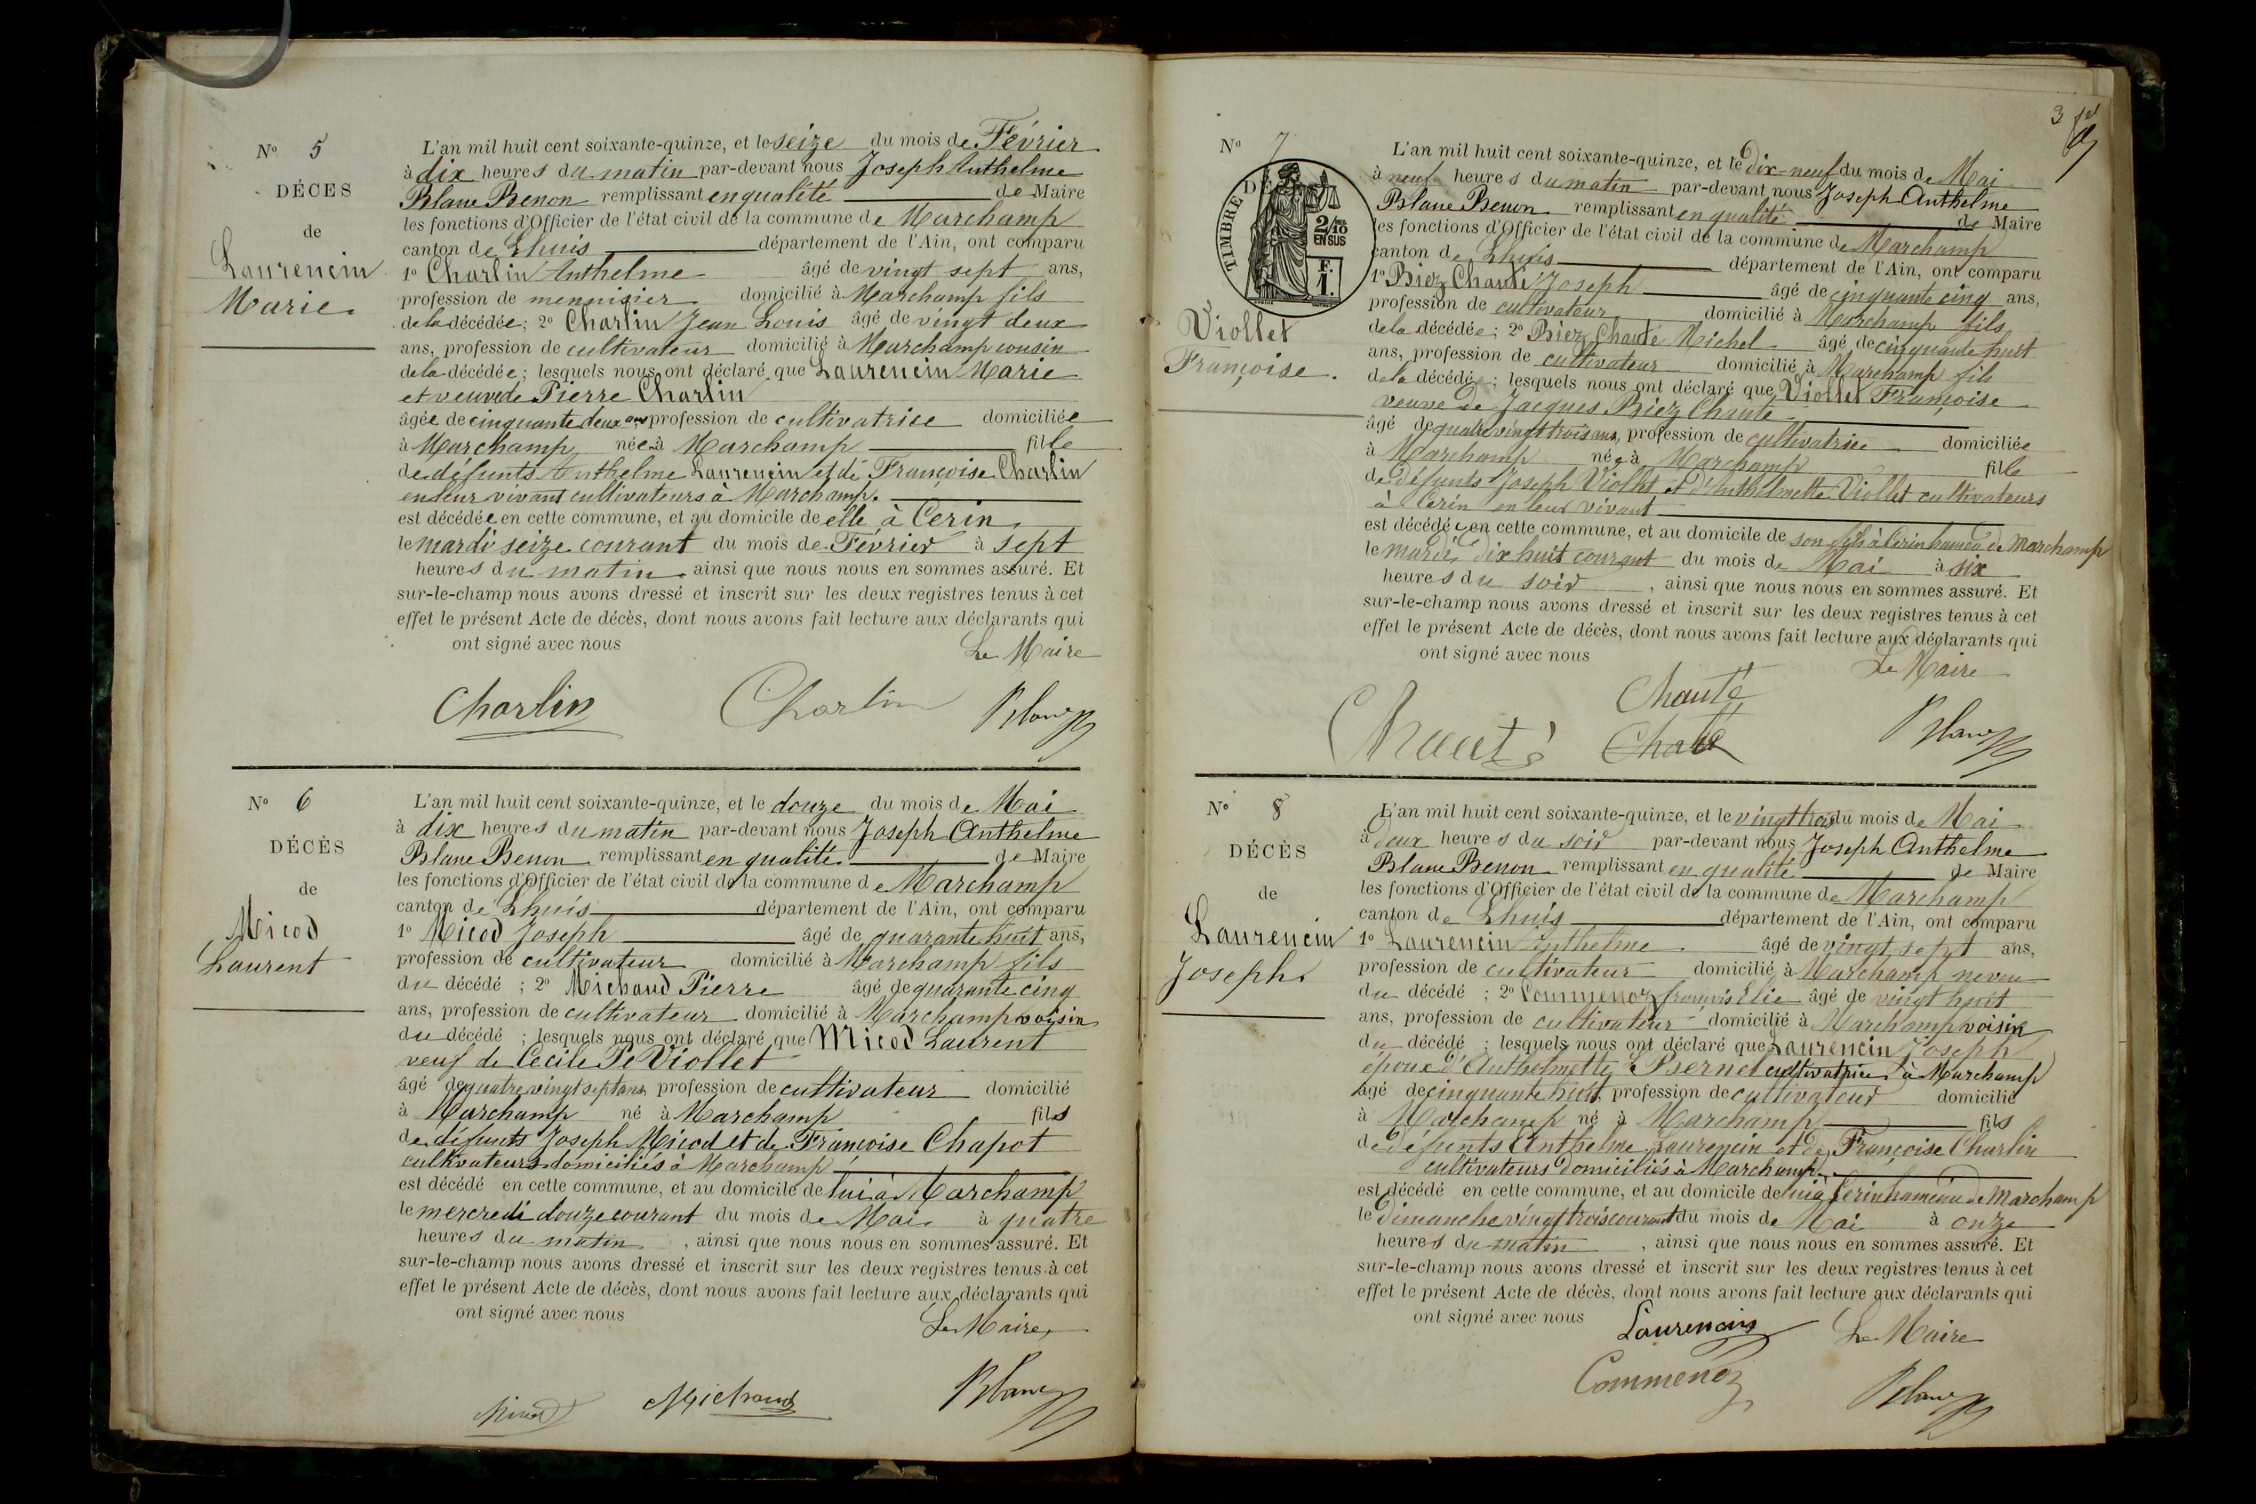 N° 5
DÉCES
de
Laurencin
Marie.
L'an mil huit cent soixante-quinze, et le seize du mois de Février
à dix heures du matin par-devant nous Joseph Anthelme
Blanc Benon remplissant en qualité de Maire
les fonctions d'Officier de l'état civil de la commune de Marchamp
canton de Lhuis département de l'Ain, ont comparu
1° Charlin Anthelme âgé de vingt sept ans,
profession de menuisier domicilié à Marchamp fils
de la décédée; 2° Charlin Jean Louis âgé de vingt deux
ans, profession de cultivateur domicilié à Marchamp cousin
de la décédée; lesquels nous ont déclaré que Laurencin Marie
et veuve de Pierre Charlin
âgée de cinquante deux ans profession de cultivatrice domiciliée
à Marchamp née à Marchamp fille
de défunts Anthelme Laurencin et de Françoise Charlin
en leur vivant cultivateurs à Marchamp.
est décédée en cette commune, et au domicile de elle à Cerin
le mardi seize courant du mois de Février à sept
heures du matin ainsi que nous nous en sommes assuré. Et
sur-le-champ nous avons dressé et inscrit sur les deux registres tenus à cet
effet le présent Acte de décès, dont nous avons fait lecture aux déclarants qui
ont signé avec nous Le Maire
Charlin Charlin Blanc
N° 6
DÉCÈS
de
Micod
Laurent
L'an mil huit cent soixante-quinze, et le douze du mois de Mai
à dix heures du matin par-devant nous Joseph Anthelme
Blanc Benon remplissant en qualité de Maire
les fonctions d'Officier de l'état civil de la commune de Marchamp
canton de Lhuis département de l'Ain, ont comparu
1° Micod Joseph âgé de quarante huit ans,
profession de cultivateur domicilié à Marchamp fils
du décédé ; 2° Michaud Pierre âgé de quarante cinq
ans, profession de cultivateur domicilié à Marchamp voisin
du décédé ; lesquels nous ont déclaré que Micod Laurent
veuf de Cecile Pe Viollet
âgé de quatre vingt sept ans profession de cultivateur domicilié
à Marchamp né à Marchamp fils
de défunts Joseph Micod et de Françoise Chapot
cultivateurs domiciliés à Marchamp
est décédé en cette commune, et au domicile de lui à Marchamp
le mercredi douze courant du mois de Mai à quatre
heures du matin , ainsi que nous nous en sommes assuré. Et
sur-le-champ nous avons dressé et inscrit sur les deux registres tenus à cet
effet le présent Acte de décès, dont nous avons fait lecture aux déclarants qui
ont signé avec nous Le Maire
Micod Michaud Blanc
3
N° 7
DÉ
TIMBRE
2/10
EN SUS
F.
1.
Viollet
Françoise.
L'an mil huit cent soixante-quinze, et le dix-neuf du mois de Mai
à neuf heures du matin par-devant nous Joseph Anthelme
Blanc Benon remplissant en qualité de Maire
les fonctions d'Officier de l'état civil de la commune de Marchamp
canton de Lhuis département de l'Ain, ont comparu
1° Biez Chanté Joseph âgé de cinquante cinq ans,
profession de cultivateur domicilié à Marchamp fils
de la décédée; 2° Biez Chanté Michel âgé de cinquante huit
ans, profession de cultivateur domicilié à Marchamp fils
de la décédée; lesquels nous ont déclaré que Viollet Françoise
veuve de Jacques Biez Chanté
âgé de quatre vingt trois ans, profession de cultivatrice domiciliée
à Marchamp née à Marchamp fille
de défunts Joseph Viollet et d'Anthelmette Viollet cultivateurs
à Cerin en leur vivant
est décédée en cette commune, et au domicile de son fils à Cerin hameau de Marchamp
le mardi dix huit courant du mois de Mai à six
heures du soir , ainsi que nous nous en sommes assuré. Et
sur-le-champ nous avons dressé et inscrit sur les deux registres tenus à cet
effet le présent Acte de décès, dont nous avons fait lecture aux déclarants qui
ont signé avec nous Le Maire
Chanté
Chanté Blanc
N° 8
DÉCÈS
de
Laurencin
Joseph
L'an mil huit cent soixante-quinze, et le vingt trois du mois de Mai
à deux heures du soir par-devant nous Joseph Anthelme
Blanc Benon remplissant en qualité de Maire
les fonctions d'Officier de l'état civil de la commune de Marchamp
canton de Lhuis département de l'Ain, ont comparu
1° Laurencin Anthelme âgé de vingt sept ans,
profession de cultivateur domicilié à Marchamp neveu
du décédé ; 2° Commenoz françois Elie âgé de vingt huit
ans, profession de cultivateur domicilié à Marchamp voisin
du décédé ; lesquels nous ont déclaré que Laurencin Joseph
époux d'Anthelmette Bernet cultivatrice à Marchamp
âgé de cinquante huit, profession de cultivateur domicilié
à Marchamp né à Marchamp fils
de défunts Anthelme Laurencin et de Françoise Charlin
cultivateurs domiciliés à Marchamp.
est décédé en cette commune, et au domicile de lui à Cerin hameau de Marchamp
le dimanche vingt trois courant du mois de Mai à onze
heures du matin , ainsi que nous nous en sommes assuré. Et
sur-le-champ nous avons dressé et inscrit sur les deux registres tenus à cet
effet le présent Acte de décès, dont nous avons fait lecture aux déclarants qui
ont signé avec nous Laurencin Le Maire
Commenoz Blanc